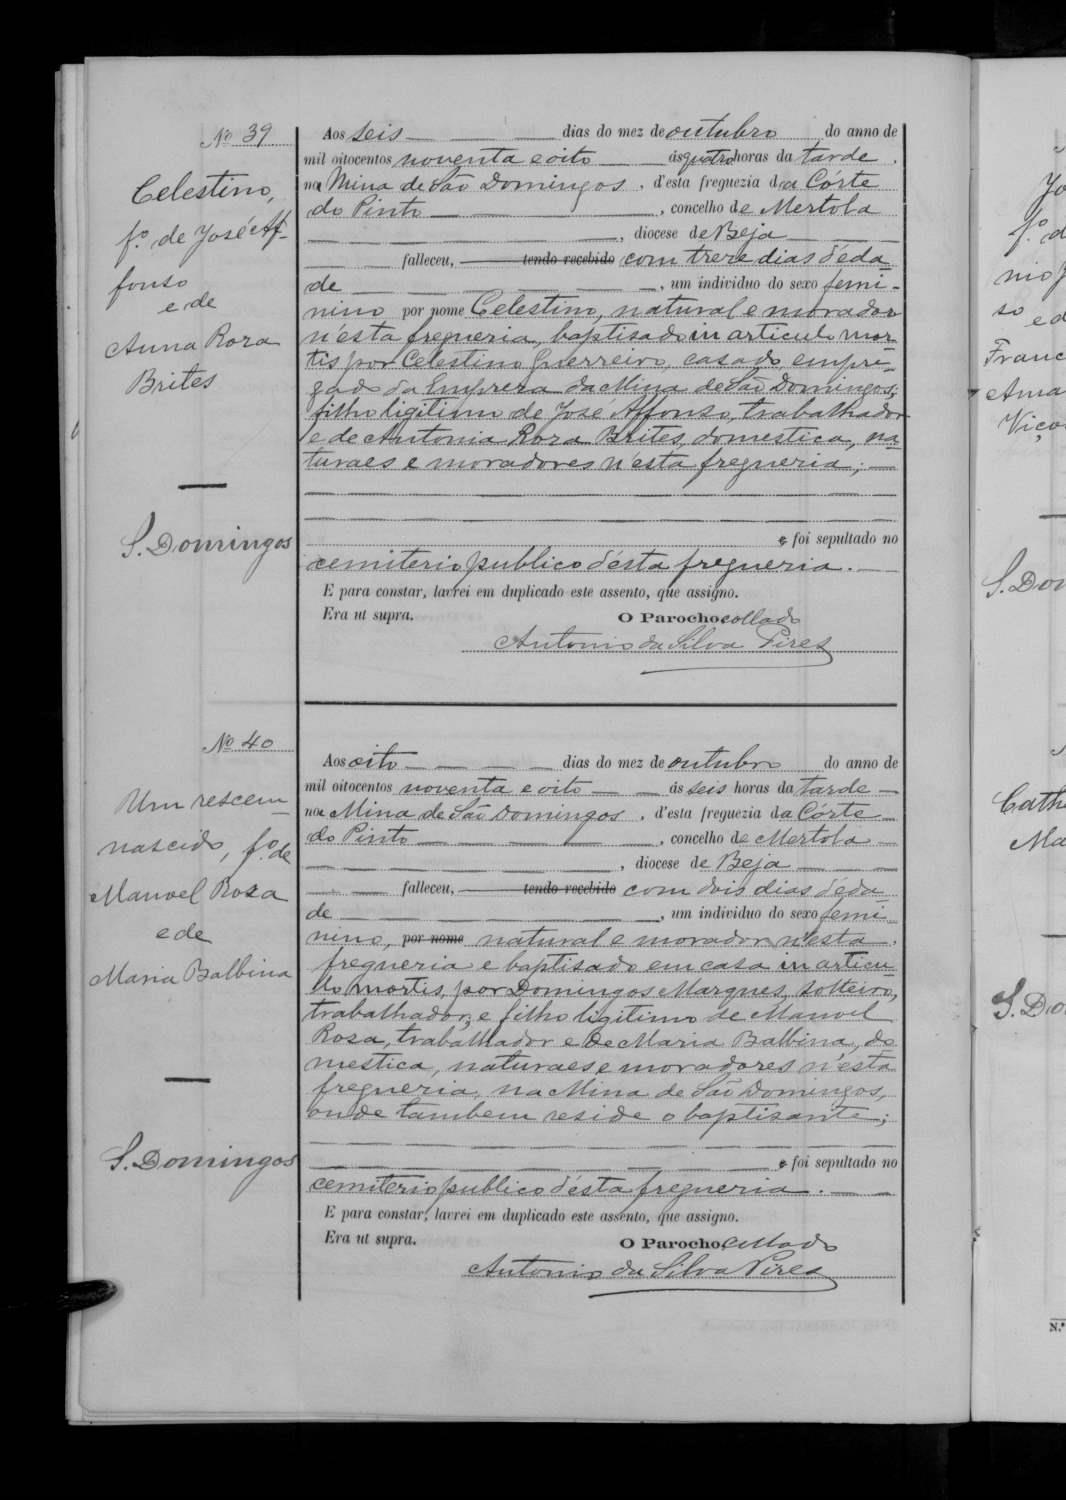 Nº 39
Celestino,
fº. de José Af-
fonso
e de
Anna Roza
Brites
S. Domingos
Aos seis dias do mez de outubro do anno de
mil oitocentos noventa e oito ás quatro horas da tarde.
na Mina de São Domingos, d'esta freguezia da Córte
do Pinto, concelho de Mertola
, diocese de Beja
falleceu, tendo recebido com treze dias d'eda-
de, um individuo do sexo femi-
nino por nome Celestino, natural e morador
n'esta fregueria, baptisado in articulo mor-
tis por Celestino Guerreiro, casado, empre-
gado da Empreza da Mina de São Domingos,
filho ligitimo de José Affonso, trabalhador
e de Antonia Roza Brites, domestica, na-
turaes e moradores n'esta fregueria;
e foi sepultado no
cemiterio publico d'ésta fregueria.
E para constar, lavrei em duplicado este assento, que assigno.
Era ut supra.
O Parocho collado
Antonio da Silva Pires
Nº 40
Um rescem-
nascido, fº. de
Manoel Roza
e de
Maria Balbina
S. Domingos
Aos oito dias do mez de outubro do anno de
mil oitocentos noventa e oito ás seis horas da tarde
na Mina de São Domingos, d'esta freguezia da Córte
do Pinto, concelho de Mertola
, diocese de Beja
falleceu, tendo recebido com dois dias d'eda-
de, um individuo do sexo femi-
nino, por nome natural e morador n'esta
fregueria e baptisado em casa in articu-
lo mortis, por Domingos Marques, solteiro,
trabalhador, e filho ligitimo de Manoel
Rosa, trabalhador e de Maria Balbina, do-
mestica, naturaes e moradores n'ésta
fregueria, na Mina de São Domingos,
onde tambem reside o baptisante;
e foi sepultado no
cemiterio publico d'ésta fregueria.
E para constar, lavrei em duplicado este assento, que assigno.
Era ut supra.
O Parocho collado
Antonio da Silva Pires